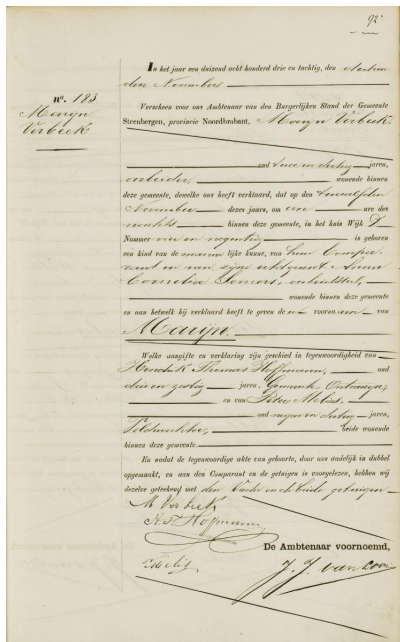 92
In het jaar een duizend acht honderd drie en tachtig, den dertien
den November
nº. 183
Marijn
Verbeek
Verscheen voor ons Ambtenaar van den Burgerlijken Stand der Gemeente
Steenbergen, provincie Noordbrabant, Marijn Verbeek
oud twee en dertig jaren,
arbeider, wonende binnen
deze gemeente, dewelke ons heeft verklaard, dat op den twaalfden
November dezes jaars, om een ure des
nachts binnen deze gemeente, in het huis Wijk D
Nommer vier en negentig is geboren
een kind van de mannelijke kunne, van hem Compa-
rant en van zijne echtgenoot
Cornelia
wonende binnen deze gemeente
en aan hetwelk hij verklaard heeft te geven den voornaam van
Marijn.
Welke aangifte en verklaring zijn geschied in tegenwoordigheid van
Hendrik Thomas Hoffmann, oud
drie en zestig jaren, Gemeente Ontvanger,
en van Melis,
oud negen en dertig jaren,
Veldwachter, beide wonende
binnen deze gemeente.
En nadat de tegenwoordige akte van geboorte, door ons dadelijk in dubbel
opgemaakt, en aan den Comparant en de getuigen is voorgelezen, hebben wij
dezelve geteekend met den Vader en de beide getuigen
M Verbeek
H. T. Hoffmann
De Ambtenaar voornoemd,
Melis
J. J. van Loon